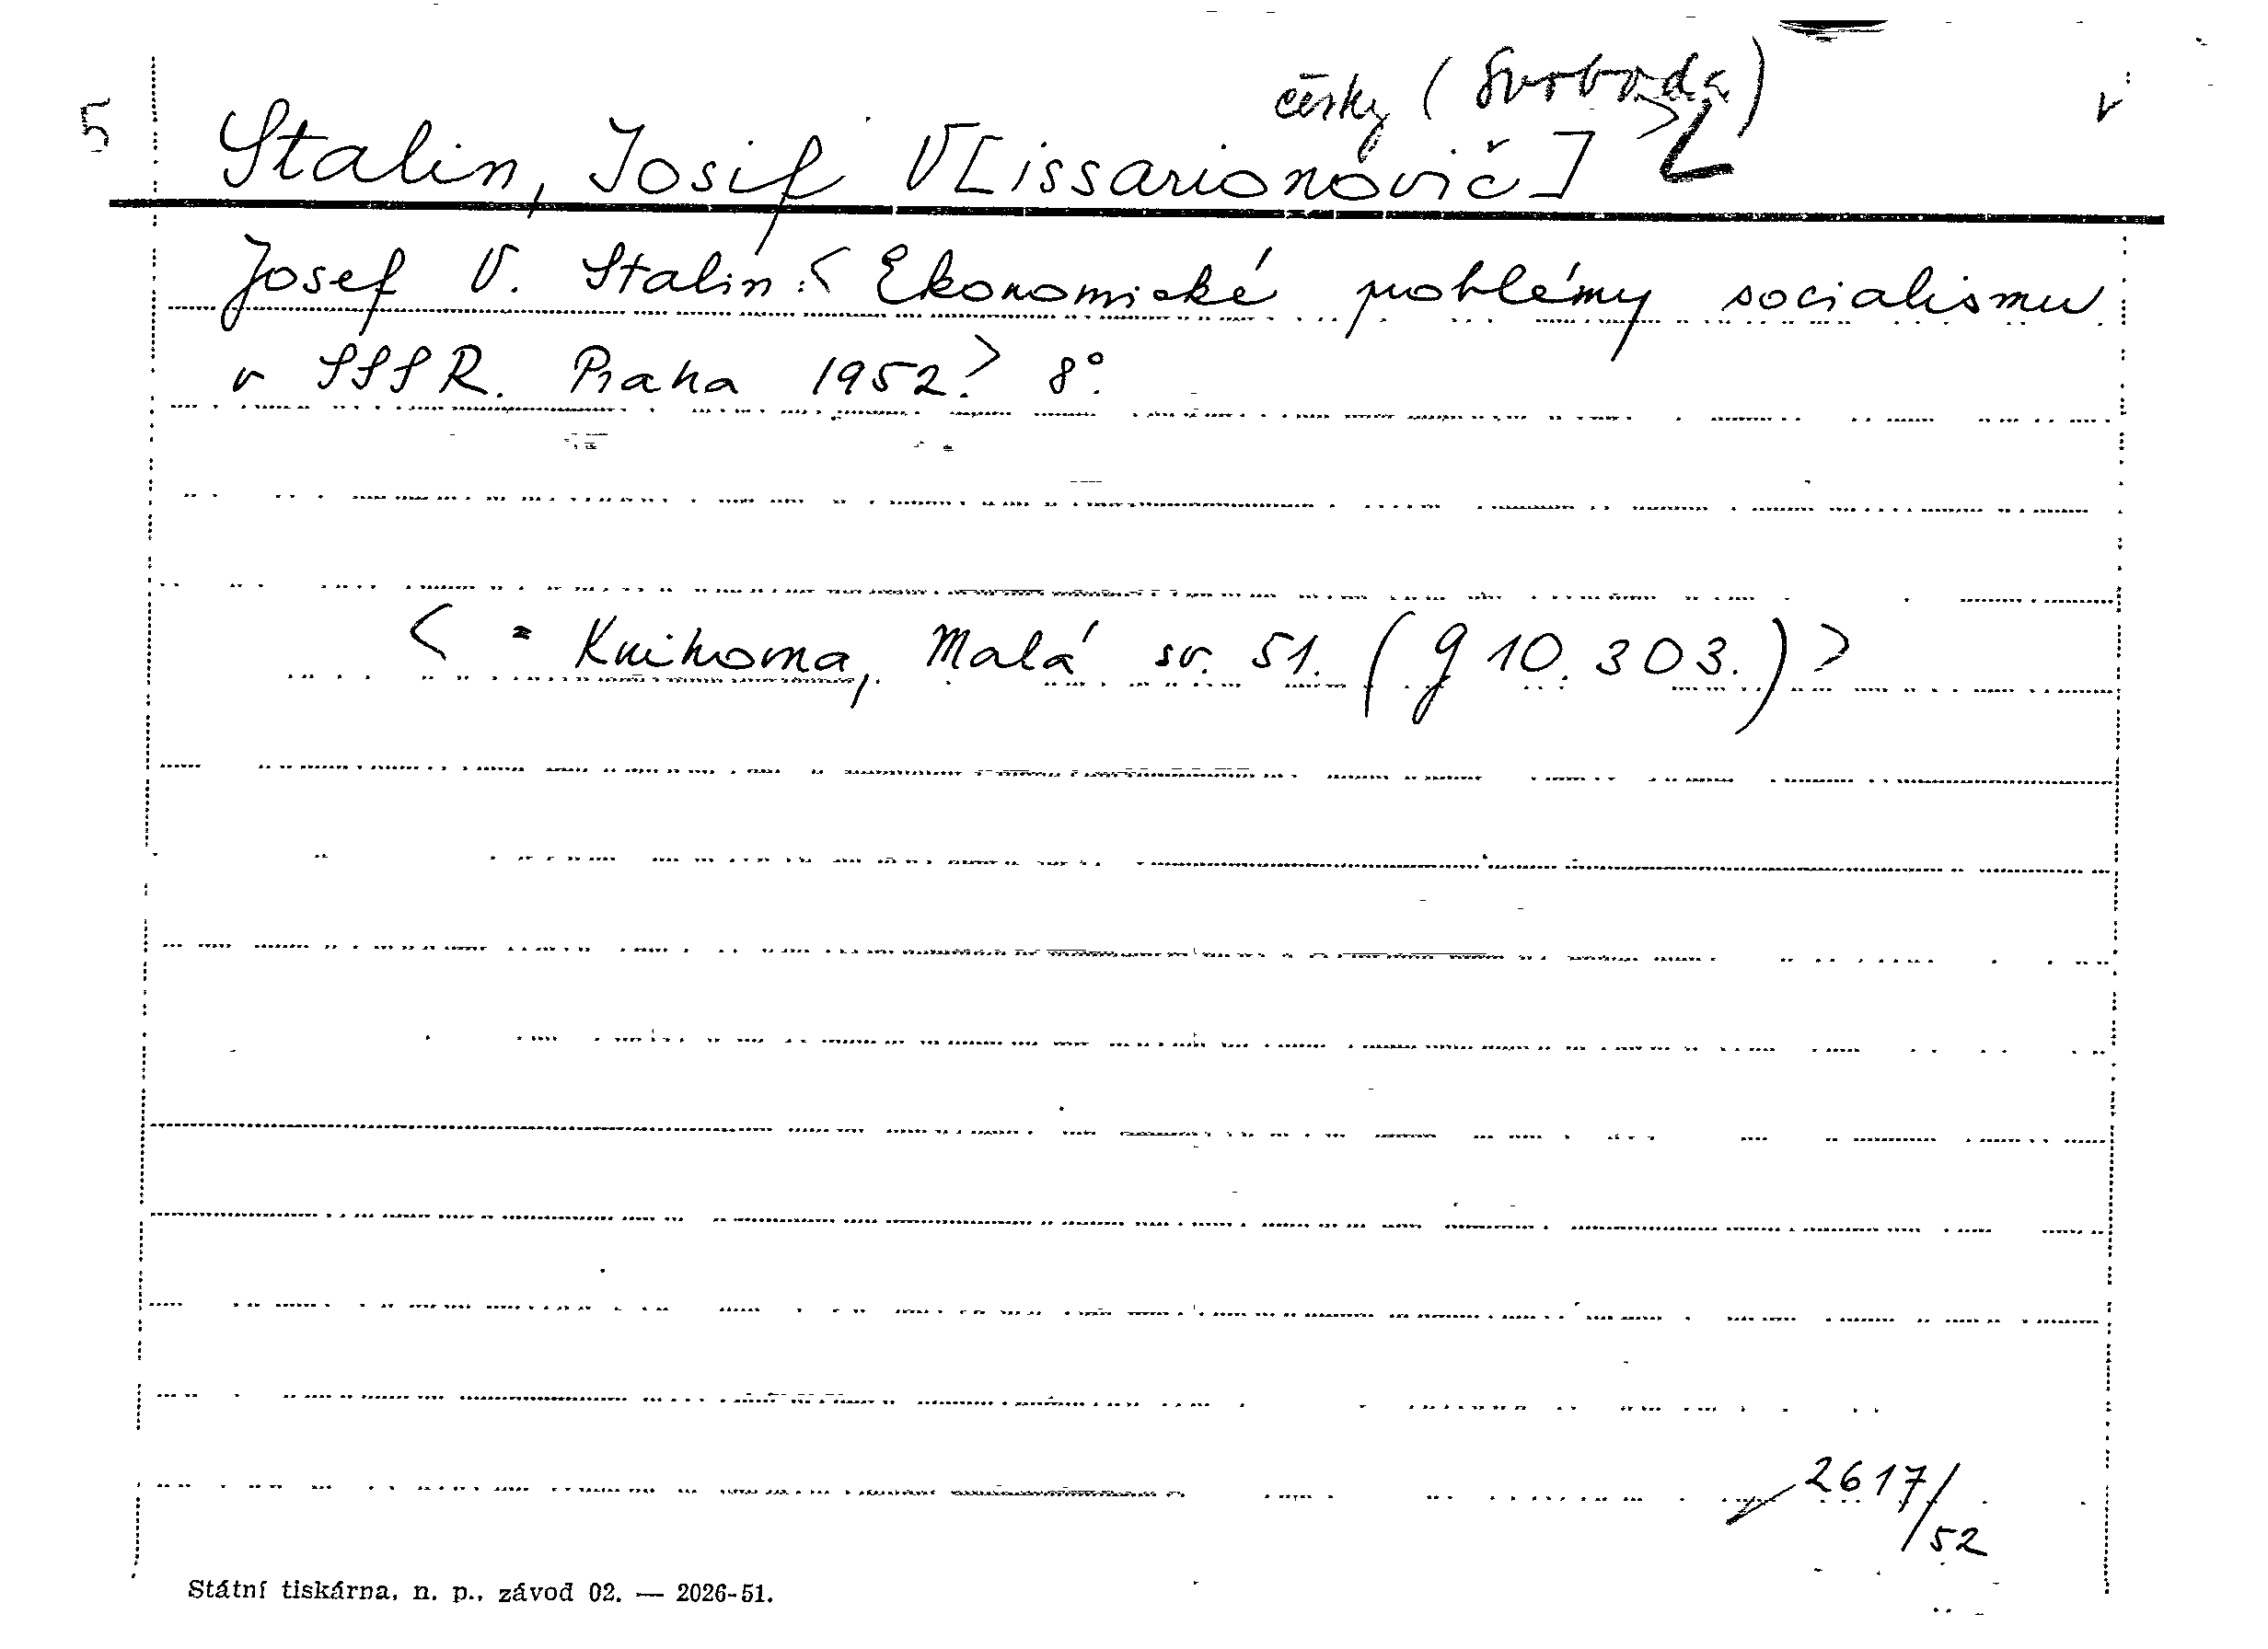 česky (Svoboda)
5 Stalin, Josif V[issarionovič]
Josef V. Stalin: < Ekonomické problémy socialismu
v SSSR. Praha 1952.> 8°.
< = Knihovna, Malá sv. 51. (g 10.303.) >
2617/
52
Státní tiskárna, n. p., závod 02. — 2026-51.